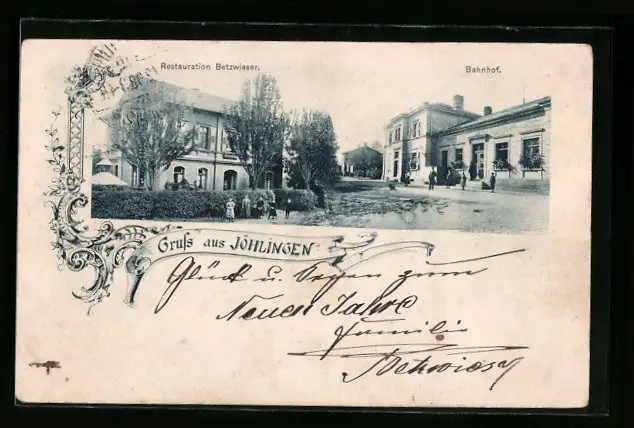 Restauration Betzwieser.
Bahnhof.
Gruss aus JÖHLINGEN
Glück u. Segen zum
Neuen Jahre
Familie